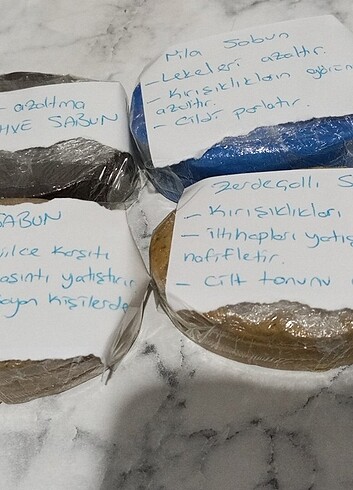 - azaltma
HVE SABUN
Mila Sabun
- Lekeleri azaltır.
- Kırışıklıkların görün
azaltır.
- Cildi parlatır.
SABUN
ilce karşıtı
asıntı yatıştırır
kişilerde
Zerdeçallı S
- Kırışıklıkları
- iltihapları yatış
hafifletir.
- Cilt tonunu